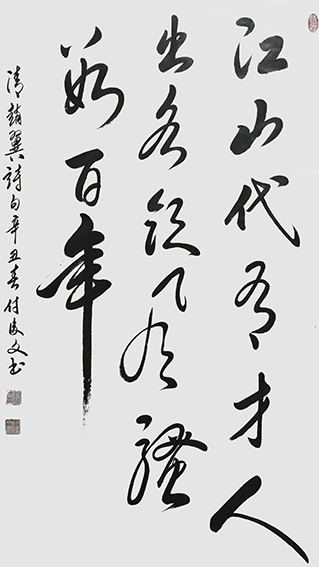 江山代有才人
出各领风骚
数百年
清赵翼詩句辛丑春付俊文书